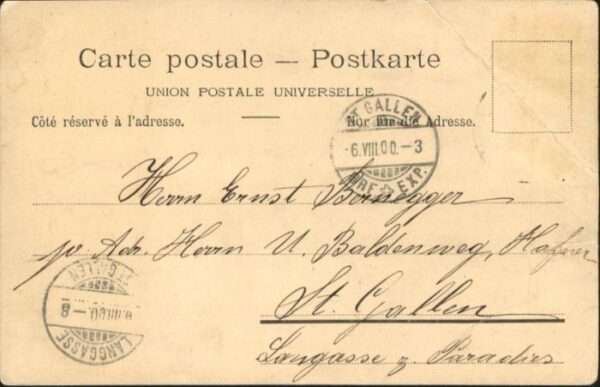 Carte postale — Postkarte
UNION POSTALE UNIVERSELLE
Côté réservé à l'adresse.
Nur für die Adresse.
ST. GALLEN
-6.VIII.00.-3
BRF. EXP.
Herrn Ernst Bornegger
pr. Adr. Herrn U. Baldenweg, Hafner
St. Gallen
Langasse z. Paradies
ST. GALLEN
VIII.00-8
LANGGASSE